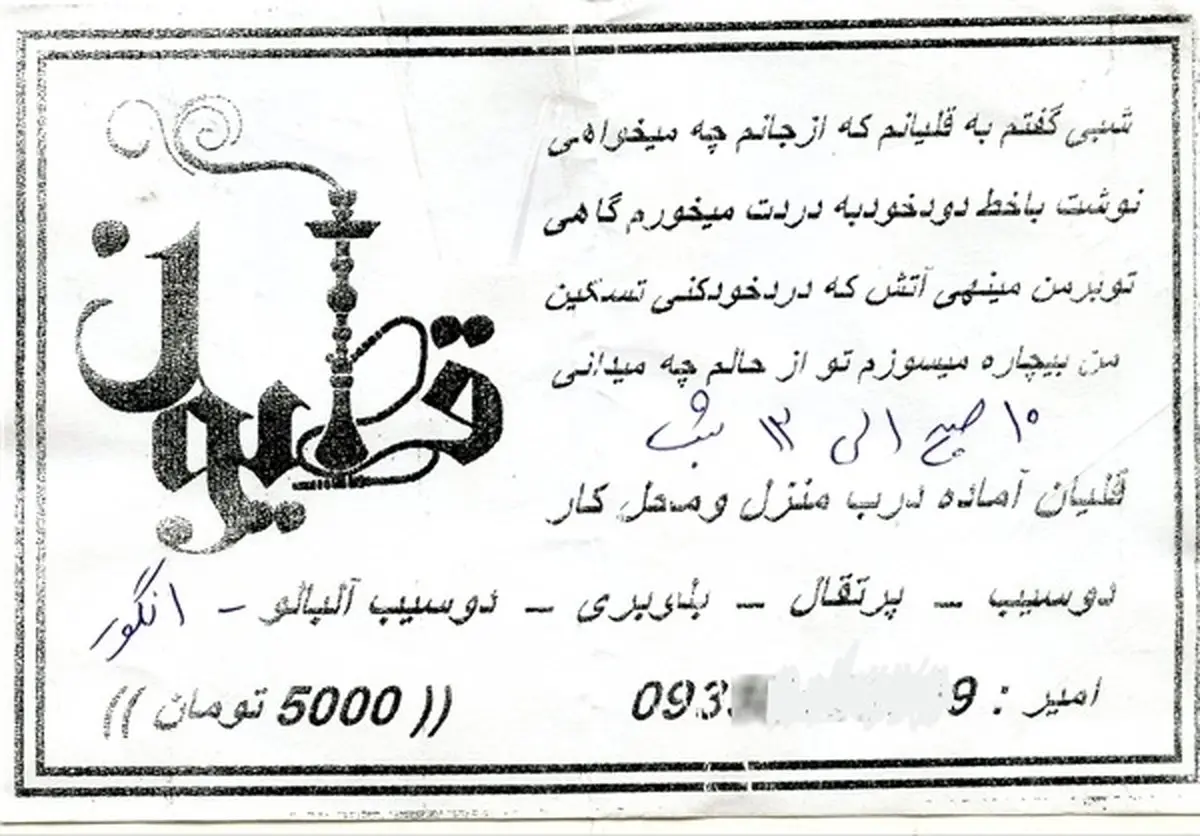 شبی گفتم به قلیانم که ازجانم چه میخواهی
نوشت باخط دودخودبه دردت میخورم گاهی
توبرمن مینهی آتش که دردخودکنی تسکین
من بیچاره میسوزم تو از حالم چه میدانی
۱۰ صبح الی ۱۲ شب
قلیان آماده درب منزل ومحل کار
دوسیب - پرتقال - بلوبری - دوسیب آلبالو - انگور
امیر : 093 9
(( 5000 تومان ))
قلیون